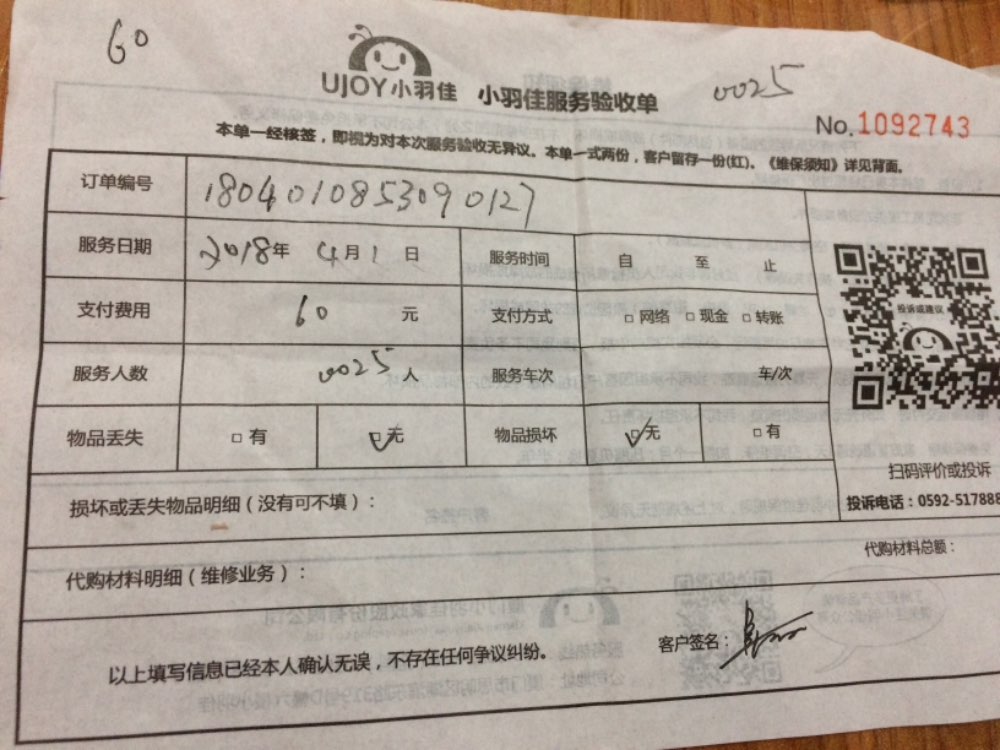 60
UJOY小羽佳 小羽佳服务验收单 0025
No.1092743
本单一经核签，即视为对本次服务验收无异议。本单一式两份，客户留存一份(红)。《维保须知》详见背面。
订单编号 1804010853090127
服务日期 2018年 4月1日 服务时间 自 至 止
支付费用 60 元 支付方式 □网络 □现金 □转账
投诉或建议
服务人数 0025人 服务车次 车/次
物品丢失 □有 ☑无 物品损坏 ☑无 □有
扫码评价或投诉
损坏或丢失物品明细（没有可不填）：
投诉电话：0592-517888
代购材料总额：
代购材料明细（维修业务）：
客户签名：
以上填写信息已经本人确认无误，不存在任何争议纠纷。